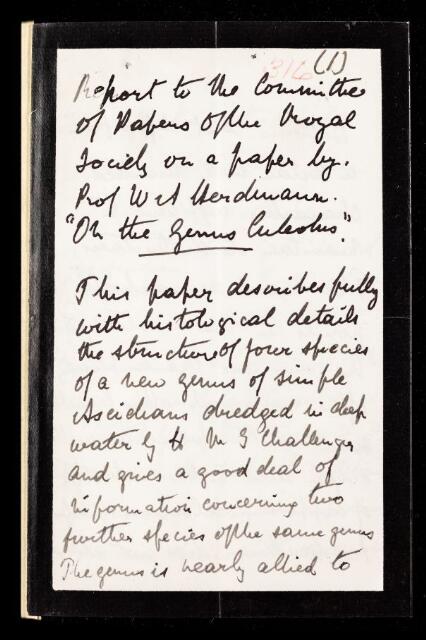 316 (1)
Report to the Committee
of Papers of the Royal
Society on a paper by.
Prof W A Herdmann.
"On the Genus Culeolus."
This paper describes fully
with histological details
the structure of four species
of a new genus of simple
Ascidians dredged in deep
water by H M S Challenger
and gives a good deal of
information concerning two
further species of the same genus
The genus is nearly allied to